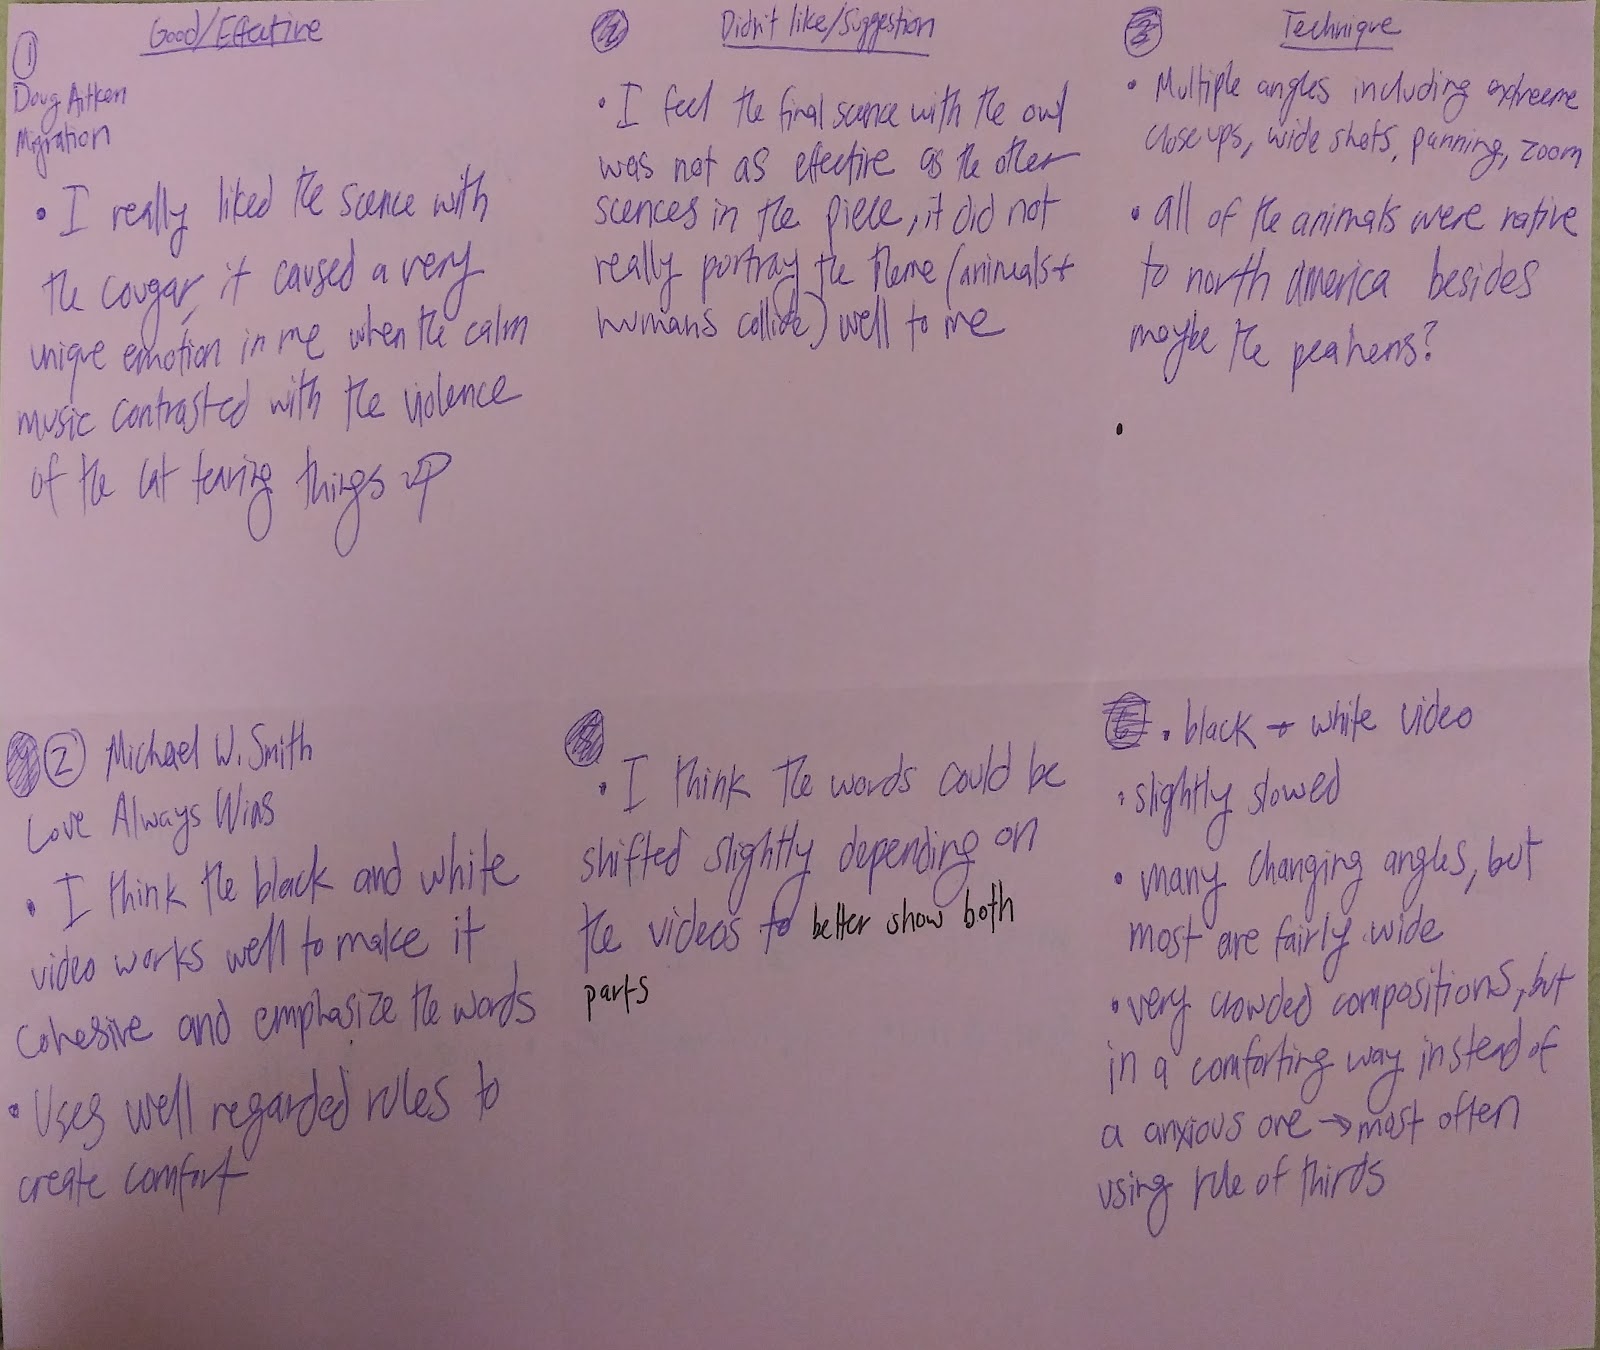 ① Good/Effective
Doug Aitken
Migration
• I really liked the scence with
the cougar, it caused a very
unique emotion in me when the calm
music contrasted with the violence
of the cat tearing things up
Didn't like/Suggestion
• I feel the final scence with the owl
was not as effective as the other
scences in the piece, it did not
really portray the theme (animals +
humans collide) well to me
Technique
• Multiple angles including extreeme
close ups, wide shots, panning, zoom
• all of the animals were native
to north america besides
maybe the peahens?
•
② Michael W. Smith
Love Always Wins
• I think the black and white
video works well to make it
cohesive and emphasize the words
• Uses well regarded rules to
create comfort
• I think the words could be
shifted slightly depending on
the videos to better show both
parts
• black + white video
• slightly slowed
• many changing angles, but
most are fairly wide
• very crowded compositions, but
in a comforting way instead of
a anxious one → most often
using rule of thirds